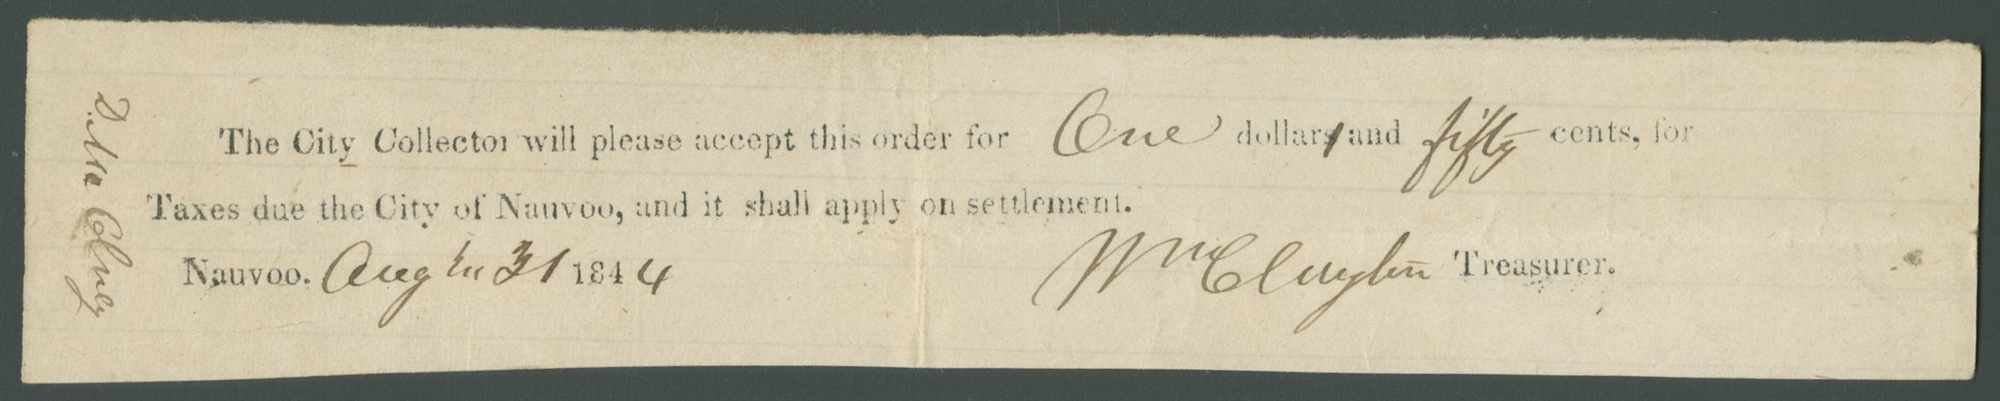 The City Collector will please accept this order for One dollar, and fifty cents, for
Taxes due the City of Nauvoo, and it shall apply on settlement.
Nauvoo. Aug 31 1844 Wm Clayton Treasurer.